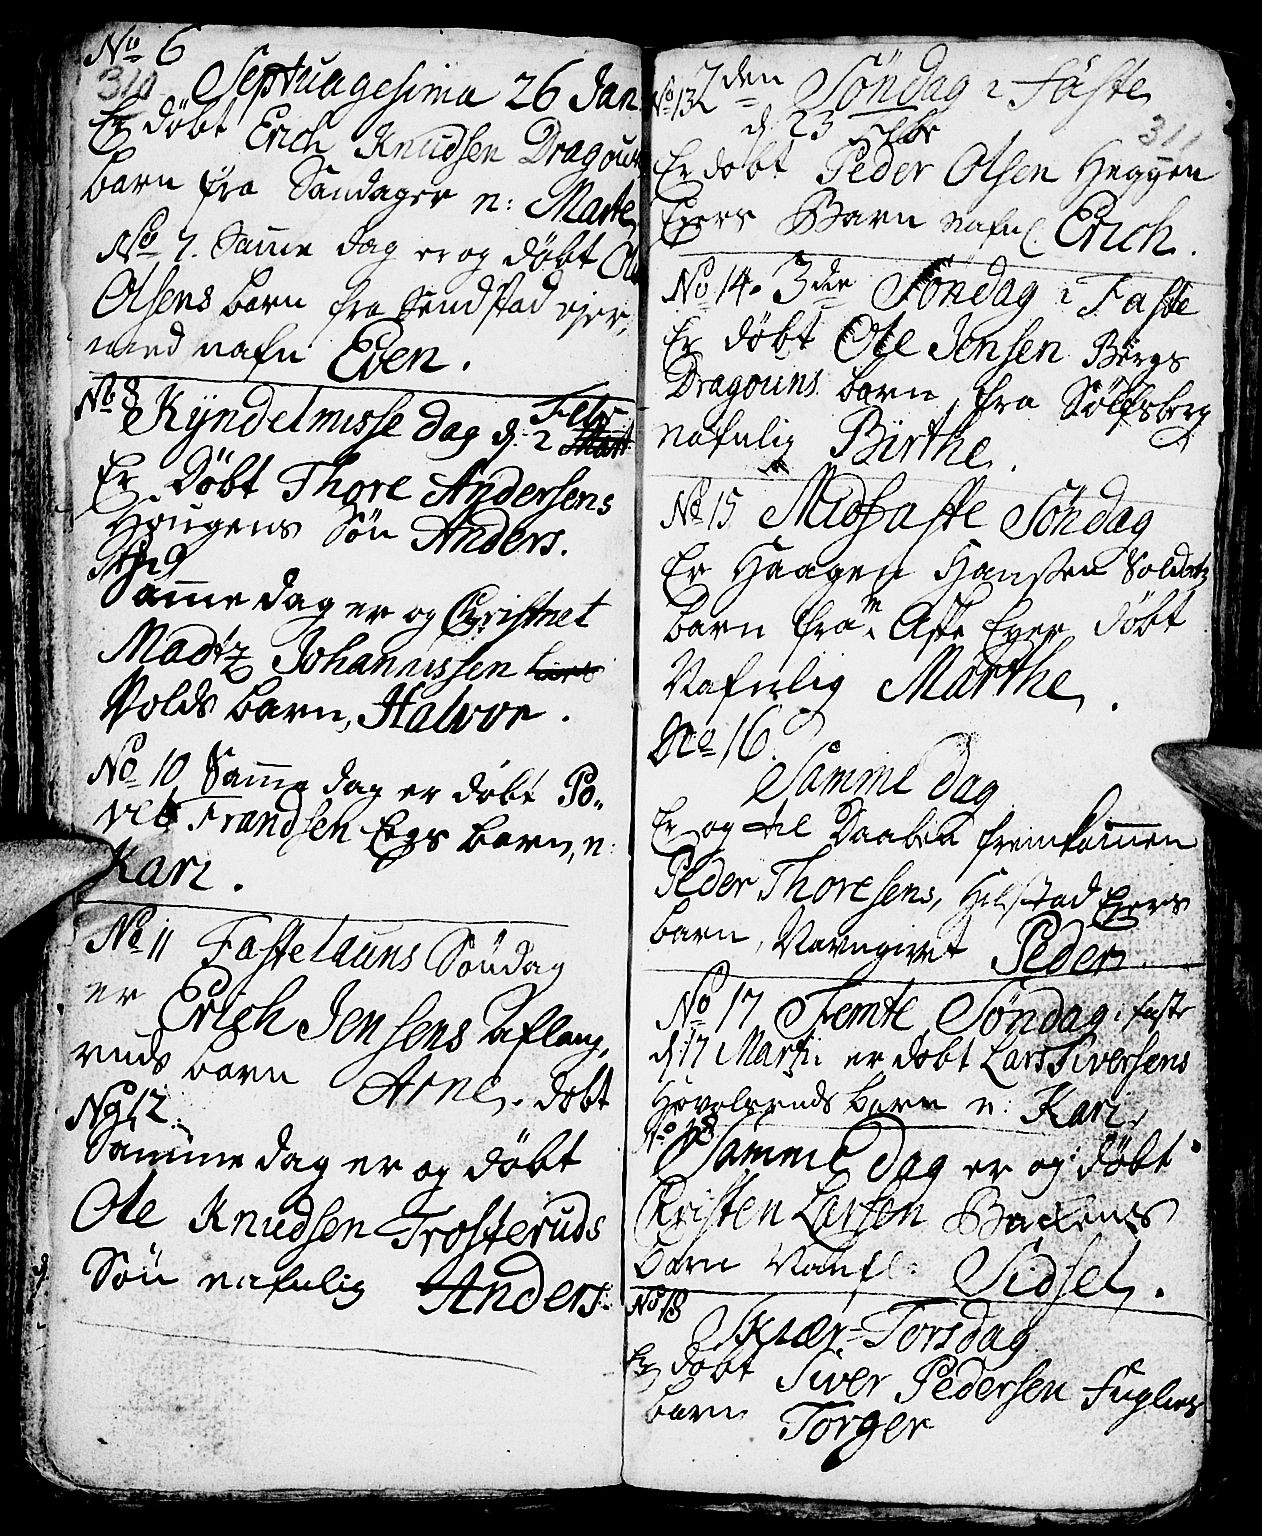 No 6
310
Septuagesima 26 Jan
Er döbt Erich Knudsen Dragoun
barn fra Sandager n: Marte
No 7. Samme dag er og döbt Ole
Olsens barn fra Sendstad ejer,
med nafn Even.
No 8
Kyndelmisse dag d. 2 Febr
Er Döbt Thore Andersens
Haugens Sön Anders.
No 9
Samme dag er og Christnet
Madtz Johannissen
Volds barn, Halvor.
No 10 Samme dag er döbt Po-
vel Frandsen Egs barn, n:
Kari.
No 11 Fastelauns Söndag
er Erich Jensens
barn Arne. döbt
No 12.
Samme dag er og döbt
Ole Knudsen Trosteruds
Sön nafnlig Anders.
No 13 2den Söndag i Faste
d. 23 Febr
311
Er döbt Peder Olsen Heggen
Ejers Barn nafnl. Erich.
No 14. 3die Söndag i Faste
Er döbt Ole Jensen Bergs
Dragouns barn, fra Sölfsberg
nafnlig Birthe.
No 15 Midfaste Söndag
Er Haagen Hansen Soldatz
barn fra Aste Ejer döbt
Nafnlig Marthe.
No 16.
Samme dag
Er og til Daaben fremkommen
Peder Thoresens, Hilstad Ejers
barn, Navngivet Peder.
No 17 Femte Söndag i faste
d. 17 Marti er döbt Lars Siversens
Hövelsruds barn n: Kari
No 18
Samme dag er og döbt
Christen Larsen Backens
barn Navfl: Sidsel.
No 18
Skiær-Torsdag
Er döbt Siver Pedersen Fuglies
barn Torger